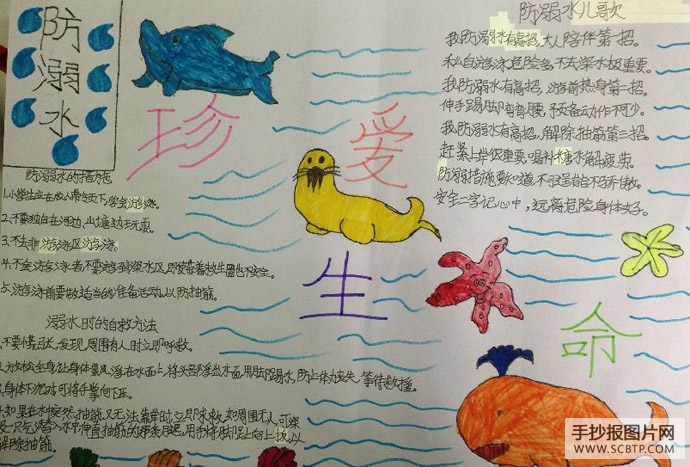 防溺水
珍爱生命
防溺水儿歌
我防溺水有高招,大人陪伴第一招。
私自游泳危险多,不去深水极重要。
我防溺水有高招,游前热身第二招。
伸手踢脚弯弯腰,预备动作不可少。
我防溺水有高招,解除抽筋第三招。
赶紧上岸很重要,喝杯糖水解疲劳。
防溺措施要知道,不可逞能
安全二字记心中,远离危险身体好。
防溺水的措施
1.小学生应在成人带领下,学会游泳。
2.不要独自在河边、山塘边玩耍。
3.不去非游泳区游泳。
4.不会游泳者,不要游到深水区,即使带着救生圈也不安全。
5.游泳前要做适当的准备活动,以防抽筋。
溺水时的自救方法
不要慌张,发现周围有人时立即呼救。
放松全身,让身体漂浮在水面上,将头部浮出水面,用脚踢水,防止体力丧失,等待救援。
身体下沉时,可将手掌向下压。
如果在水中突然抽筋,又无法靠岸时,立即求救。如周围无人,可深
吸一口气潜入水中,伸直抽筋的那条腿,用手将脚趾向上扳,以
解除抽筋。
手抄报图片网
WWW.SCBTP.COM